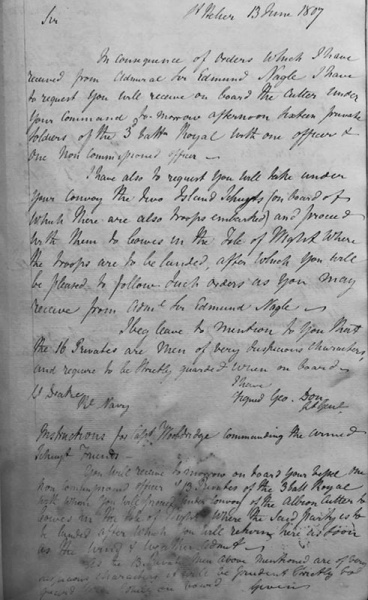 Sir St Helier 13 June 1807
In consequence of orders which I have
received from Admiral Sir Edmund Nagle I have
to request you will receive on board the Cutter under
your Command to-morrow afternoon sixteen private
soldiers of the 3 battn Royal with one officer &
one non Commissioned officer —
I have also to request you will take under
your convoy the two Island Schuyts (on board of
which there are also troops embarked) and proceed
with them to Cowes in the Isle of Wight where
the troops are to be landed, after which you will
be pleased to follow such orders as you may
receive from Adml Sir Edmund Nagle —
I beg leave to mention to you that
the 16 Privates are men of very suspicious characters
and require to be strictly guarded when on board
I have
Signed Geo. Don
Lt Genl
Lt Deake
Rl Navy
Instructions for Capt Wooldridge Commanding the armed
Schuyt Friends —
You will receive to morrow on board your Vessel one
non commissioned officer & 13 Privates of the 3 batt Royal
with whom you will proceed under convoy of the Albion Cutter to
Cowes in the Isle of Wight where the said party is to
be landed after which you will return here as soon
as the wind & weather admit —
The 13 Privates men above mentioned are of very
suspicious characters & will be prudent strictly to
guard on board Given